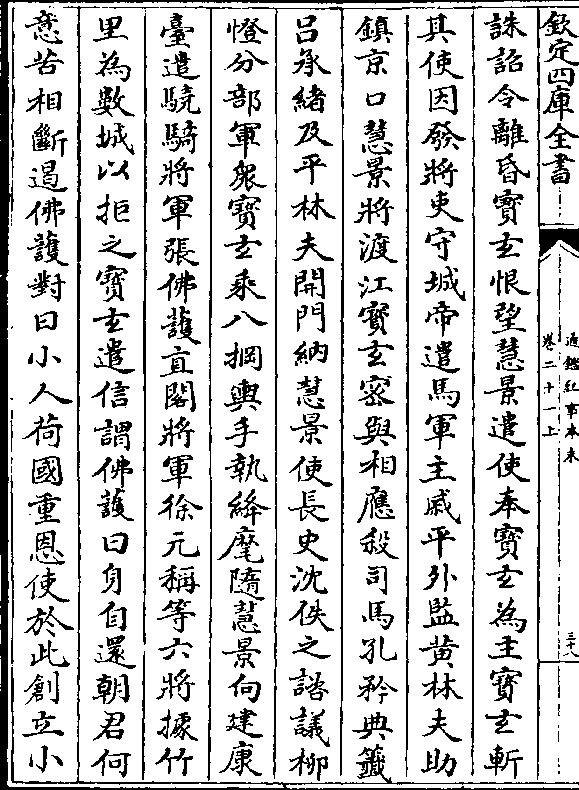 欽定四庫全書
通鑑紀事本末
卷二十一上
三十八
誅詔令離昏寳𤣥恨望慧景遣使奉寳𤣥為主寳𤣥斬
其使因發將吏守城帝遣馬軍主戚平外監黄林夫助
鎮京口慧景將渡江寳𤣥宻與相應殺司馬孔矜典籤
吕承緒及平林夫開門納慧景使長史沈佚之諮議柳
憕分部軍衆寳𤣥乘八掆輿手執絳麾隨慧景向建康
臺遣驍騎將軍張佛護直閤將軍徐元稱等六將據竹
里為數城以拒之寳𤣥遣信謂佛護曰身自還朝君何
意苦相斷遏佛護對曰小人荷國重恩使於此創立小